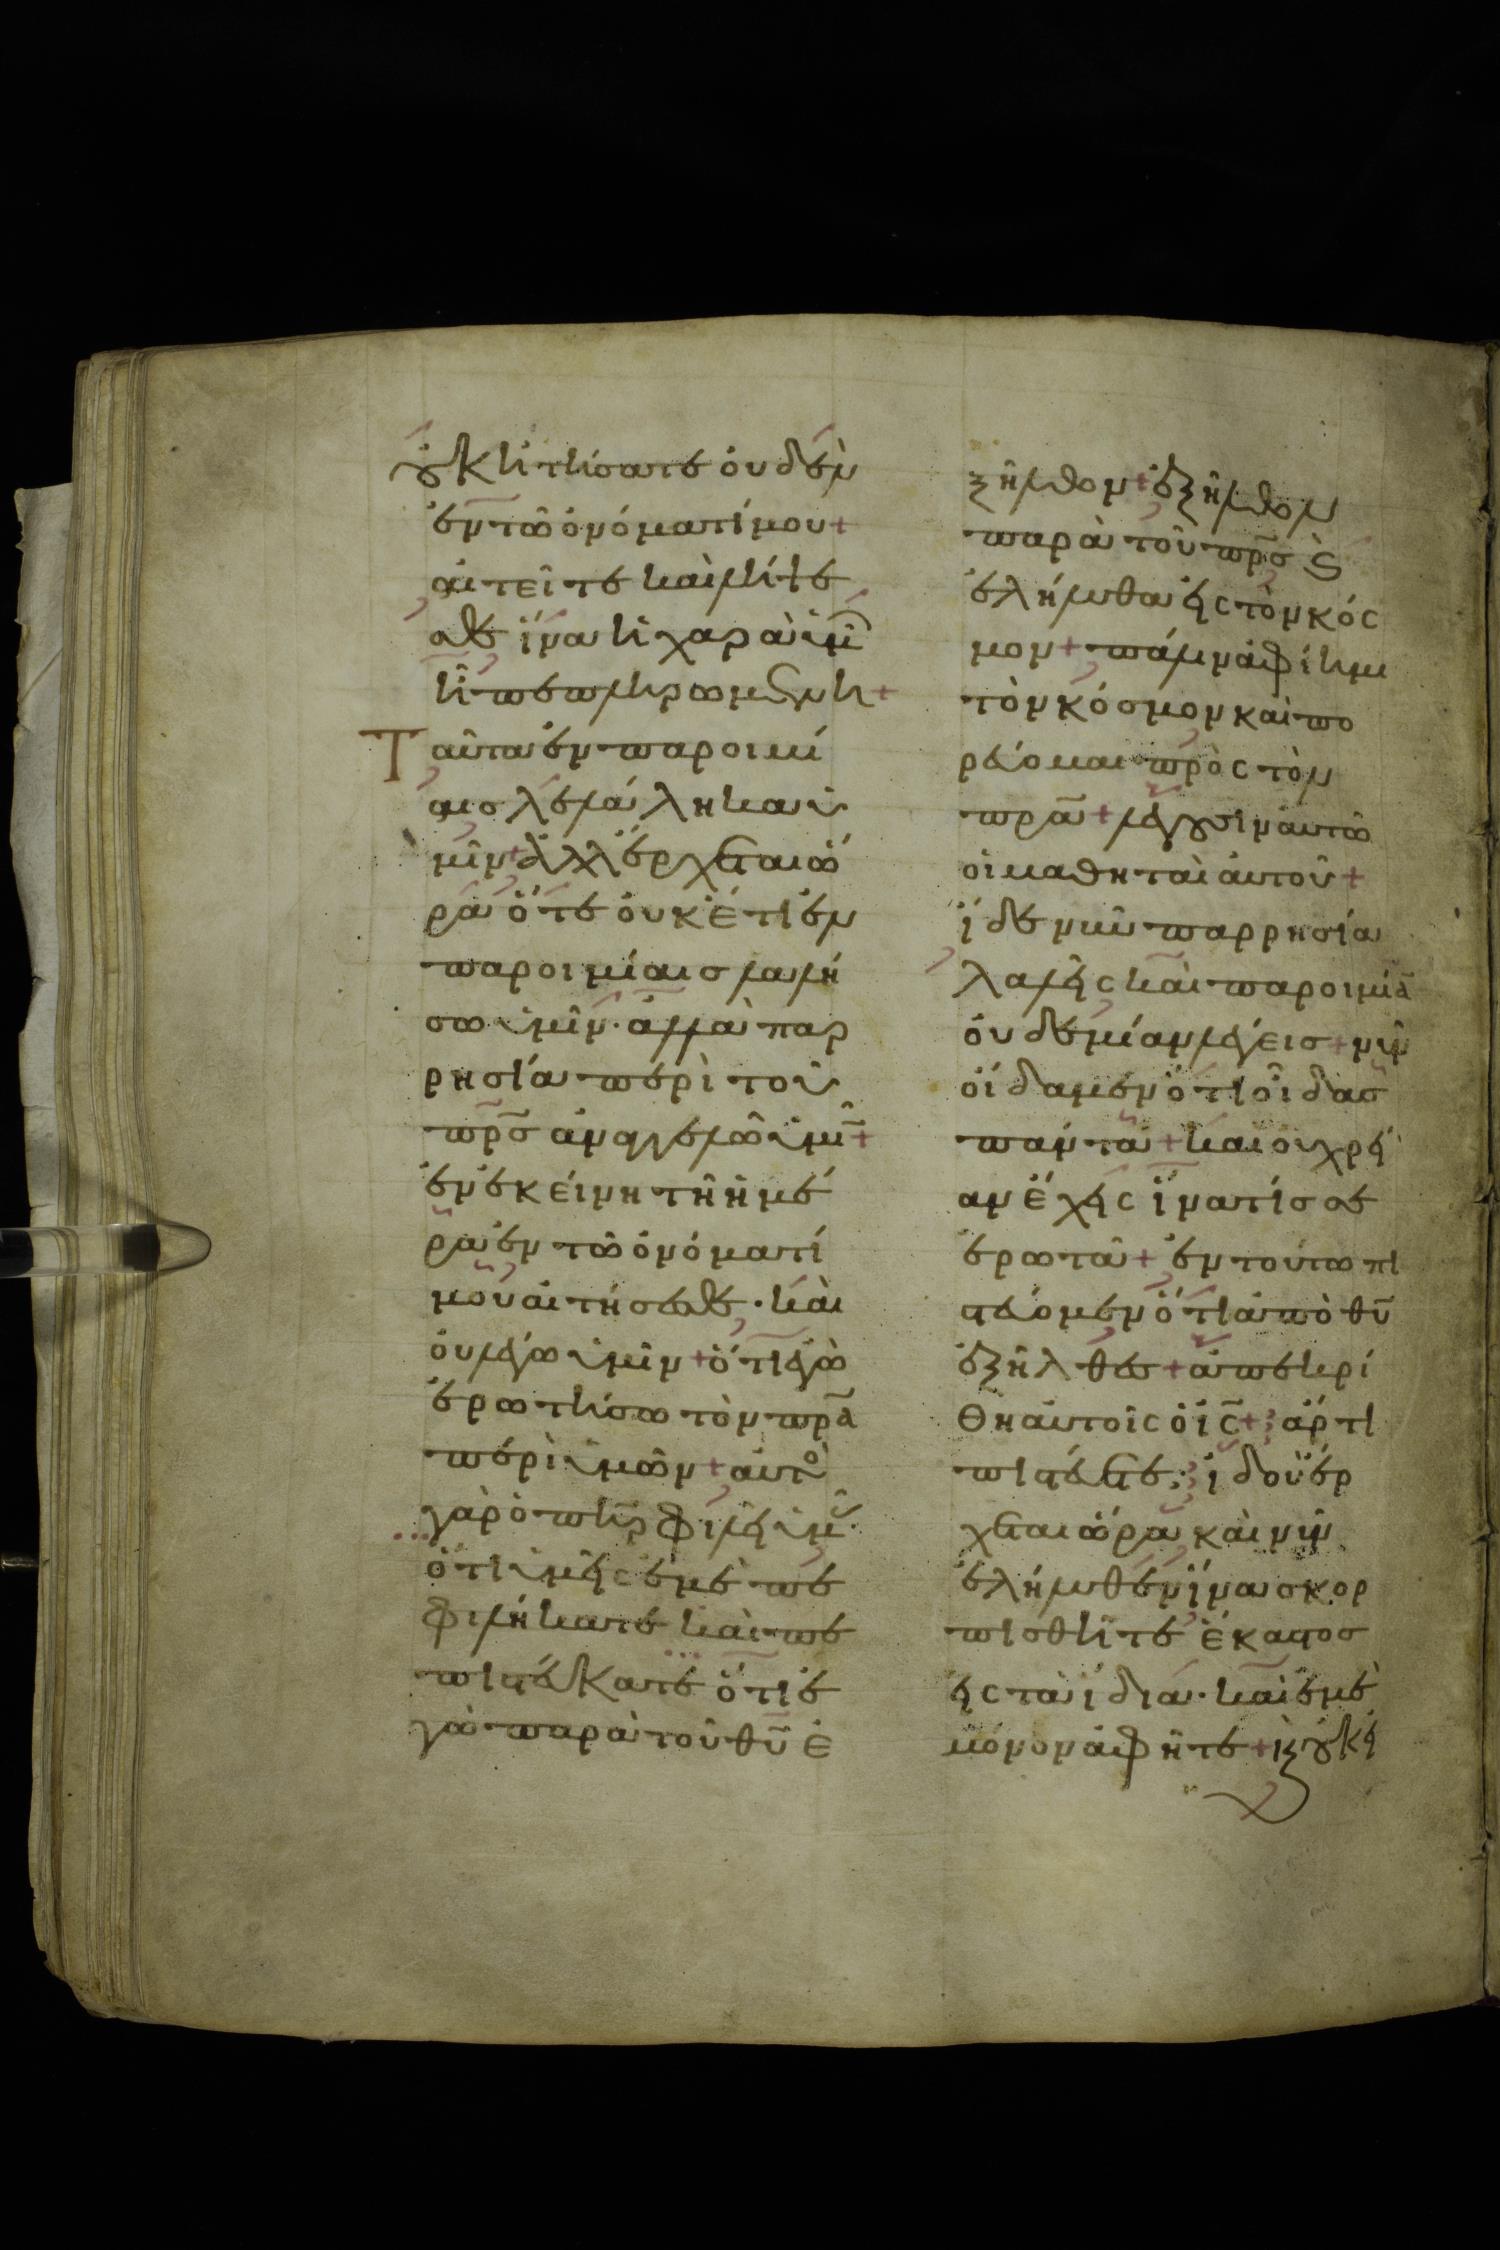 ουκ ητήσατε ουδὲν
ἐν τῶ ὀνόματί μου +
αιτεῖτε καὶ λήψε
σθε ἵνα ἡ χαρὰ ὑμῶ
ἦ πεπληρωμένη +
Ταῦτα ἐν παροιμί
αις λελάληκα ὑ
μῖν + ἀλλ ἔρχεται ὥ
ρα ὅτε οὐκ ἔτι ἐν
παροιμίαις λαλή
σω ὑμῖν · ἀλλὰ παρ
ρησία περὶ τοῦ
πρ̅σ ἀναγγελῶ ὑμῖ +
ἐν ἐκείνη τῆ ἡμέ
ρα ἐν τῶ ὀνόματί
μου αἰτήσεσθε · καὶ
οὐ λέγω ὑμῖν + ὅτι ἐγὼ
ἐρωτήσω τὸν πρ̅α
περὶ ὑμῶν + αὐτὸ
γὰρ ὁ πη̅ρ φιλεῖ ὑμᾶ·
ὅτι ὑμεῖς ἐμὲ πε
φιλήκατε καὶ πε
πιστεύκατε ὅτι ἐ
γὼ παρὰ τοῦ θυ̅ ἐ
ξῆλθον + ἐξῆλθον
παρὰ τοῦ πρ̅σ ϗ
ἐλήλυθα εἰς τὸν κόσ
μον + πάλιν ἀφίημι
τὸν κόσμον καὶ πο
ρεύομαι πρὸς τὸν
πρ̅α + λέγουσιν αὐτῶ
οἱ μαθηταὶ αὐτοῦ +
ἴδε νῦν παρρησία
λαλεῖς καὶ παροιμία
οὐδεμίαν λέγεις + νῦν
οἴδαμεν ὅτι οἶδας
πάντα + καὶ οὐ χρεί
αν ἔχεις ἵνα τίς σε
ἐρωτᾶ + ἐν τούτω πι
στεύομεν ὅτι ἀπὸ θυ̅
ἐξῆλθες + ἀπεκρί
θη αὐτοῖς ὁ ις̅ + ἄρτι
πιστεύετε; ἰδοὺ ἔρ
χεται ὥρα καὶ νῦν
ἐλήλυθεν ἵνα σκορ
πισθῆτε ἕκαστος
εἰς τὰ ἴδια · καὶ ἐμὲ
μόνον ἀφῆτε + ϗ οὐκ εἰ